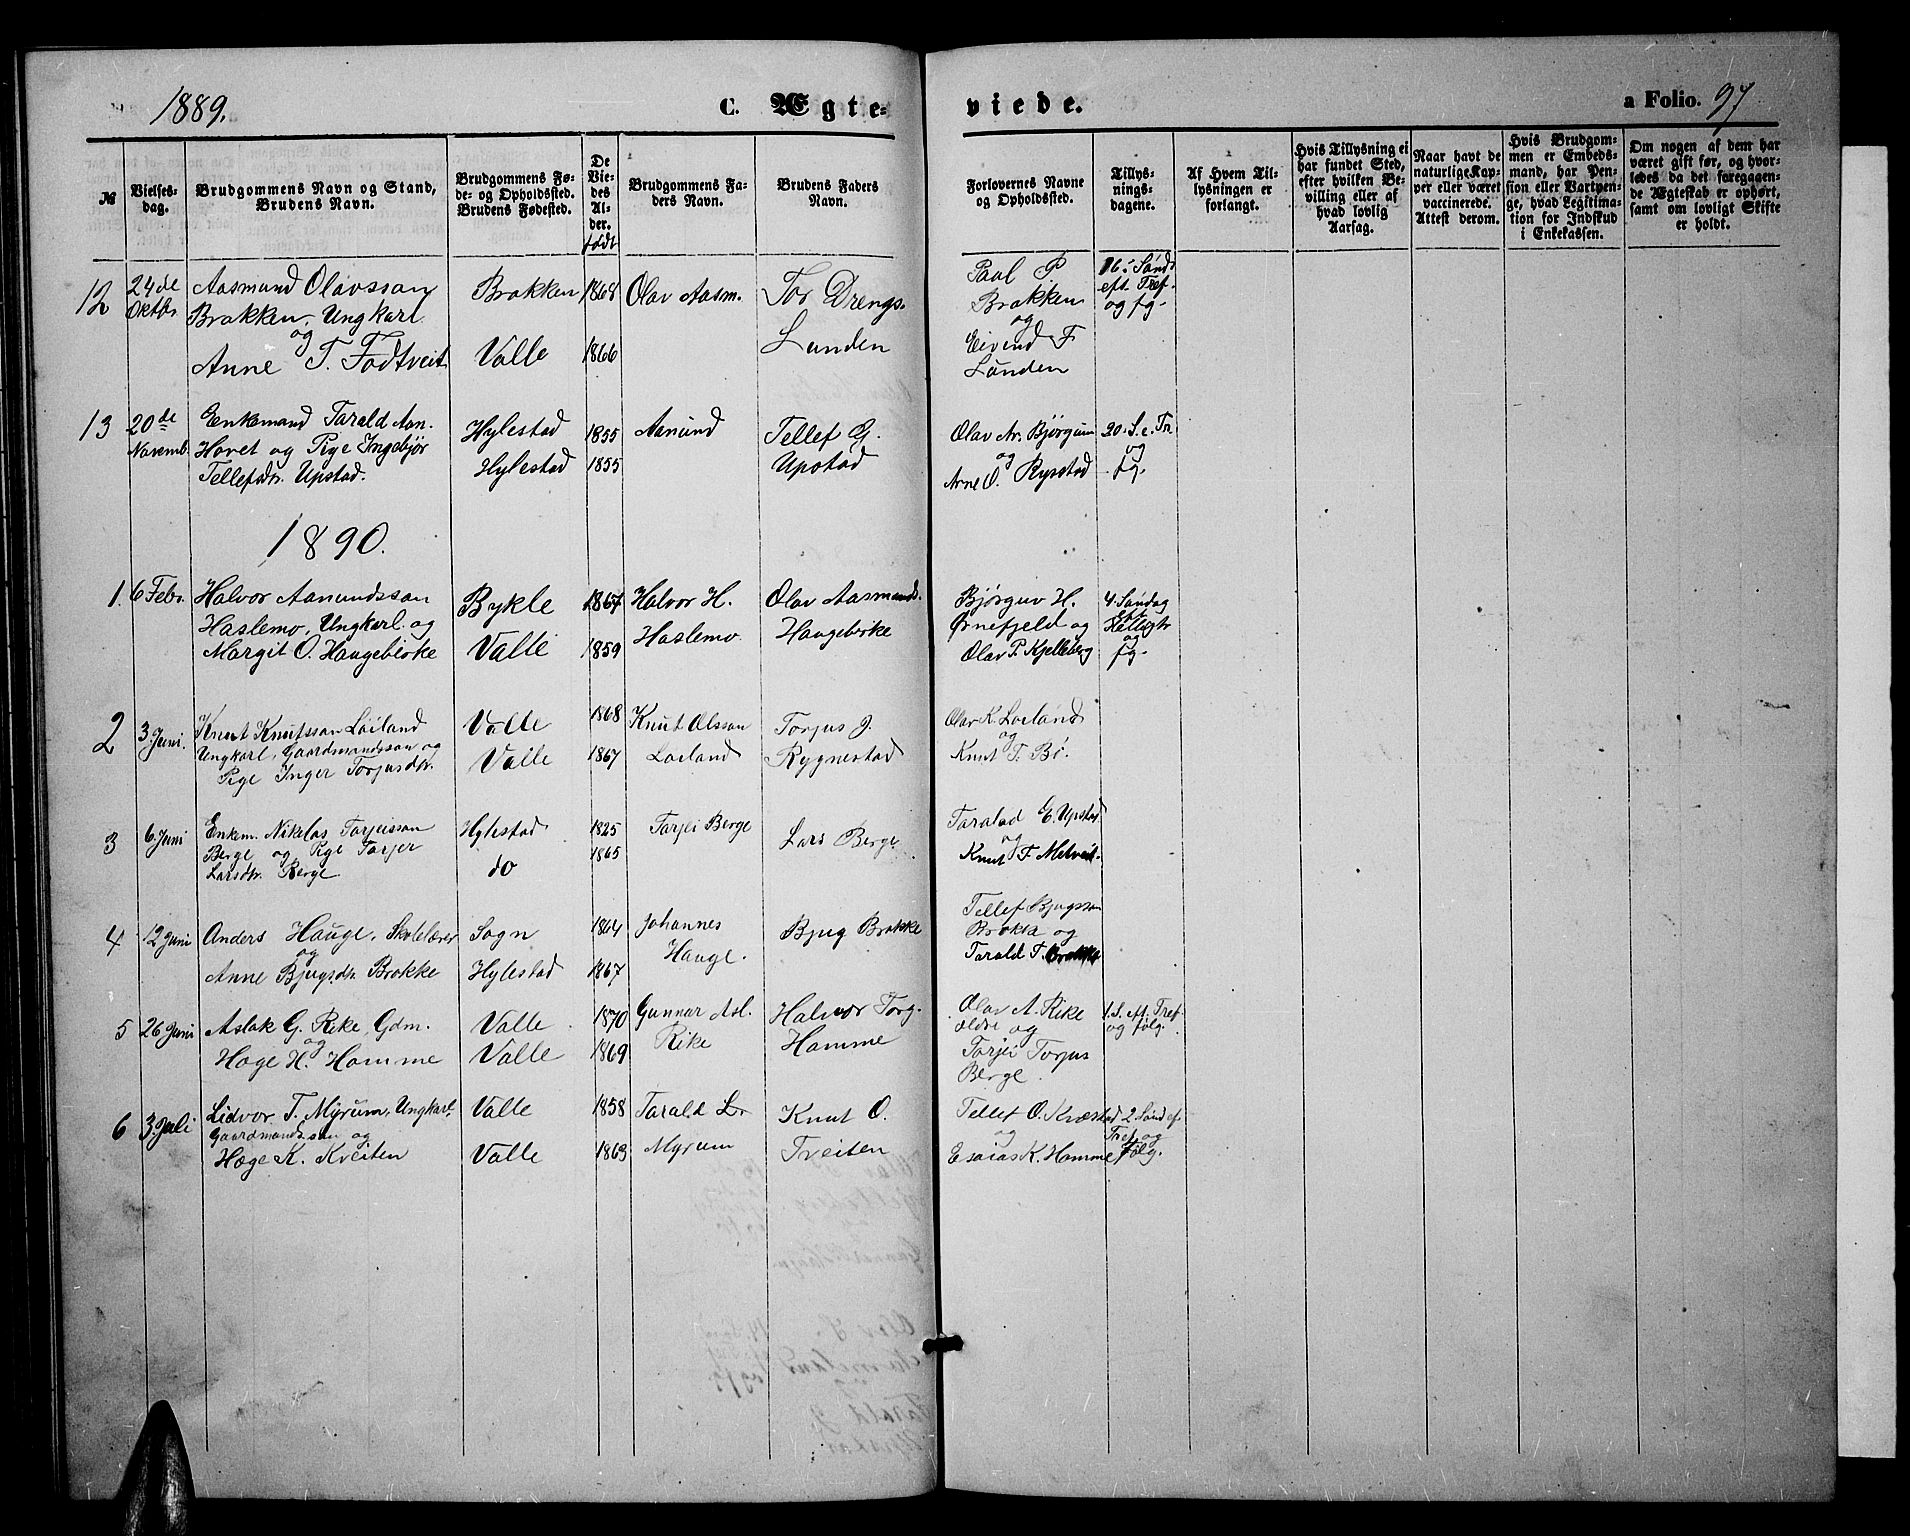 1889.
C. Ægte-
viede.
a Folio. 97
№
Vielses-
dag.
Brudgommens Navn og Stand,
Brudens Navn.
Brudgommens Fø-
de- og Opholdssted.
Brudens Fødested.
De
Vie-
des
Al-
der.
født
Brudgommens Fa-
ders Navn.
Brudens Faders
Navn.
Forlovernes Navne
og Opholdssted.
Tillys-
nings-
dagene.
Af Hvem Til-
lysningen er
forlangt.
Hvis Tillysning ei
har fundet Sted,
efter hvilken Be-
villing eller af
hvad lovlig
Aarsag.
Naar havt de
naturlige Kop-
per eller været
vaccinerede.
Attest derom.
Hvis Brudgom-
men er Embeds-
mand, har Pen-
sion eller Vartpen-
ge, hvad Legitima-
tion for Indskud
i Enkekassen.
Om nogen af dem har
været gift før, og hvor-
ledes da det foregaaen-
de Ægteskab er ophørt,
samt om lovligt Skifte
er holdt.
12
24de
Oktbr.
Aasmund Olavsson
Brokken, Ungkarl
og
Anne T. Fodtveit
Brokken
Valle
1868
1866
Olav Aasm.
Tor Drengs.
Lunden
Paal P
Brokken
og
Eivind F
Lunden
16. Sönd.
eft. Tref.
og fg.
13
20de
Novemb.
Enkemand Tarald Aan.
Hovet og Pige Ingebjør
Tellefsdtr. Upstad.
Hylestad
Hylestad
1855
1855
Aanund
Tellef G.
Upstad
Olav Ar. Bjørgum
og
Arne O. Rysstad
20. S. e. Tr
og
fg.
1890.
1.
6 Febr.
Halvor Aanundsson
Haslemo, Ungkarl. og
Margit O. Haugebirke
Bykle
Valle
1867
1859
Halvor H.
Haslemo
Olav Aasmunds.
Haugebirke
Bjørguv H.
Ørnefjeld og
Olav P. Kjelleberg
4. Søndag
Helligtr
og
fg.
2
3. Juni.
Knut Knutsson Løiland
Ungkarl, Gaardmandssøn og
Pige Inger Torjusdtr.
Valle
Valle
1868
1867
Knut Olsson
Loeland
Torjus J.
Rygnestad
Olav K. Loeland
og
Knut T. Bø.
3
6 Juni
Enkem. Nikolas Tarjeisson
Berge og Pige Tarjer
Larsdtr. Berge
Hylestad
do
1825
1865
Tarjei Berge
Lars Berge
Taralad E. Upstad
og
Knut T. Metveit.
4
12 Juni
Anders Hauge, Skolelærer
og
Anne Bjugsdtr. Brokke
Sogn
Hylestad
1864
1867
Johannes
Hauge.
Bjug Brokke
Tellef Bjugsson
Brokke og
Tarald T. Brokke
5
26 Juni
Aslak G. Rike, Gdm.
og
Hage H. Homme
Valle
Valle
1870
1869
Gunnar Asl.
Rike
Halvor Torg.
Homme
Olav A. Rike
ældre og
Tarjei Torjus
Berge
1. S. eft. Tref.
og følg.
6
3. Juli
Lidvor T. Myrum, Ungkarl.
Gaardmandssøn og
Hæge K. Kveiten
Valle
Valle
1858
1863
Tarald L.
Myrum
Knut O.
Tveiten
Tellef O. Kvæstad
og
Esaias K. Homme
2. Sönd ef
Tref. og
følg.